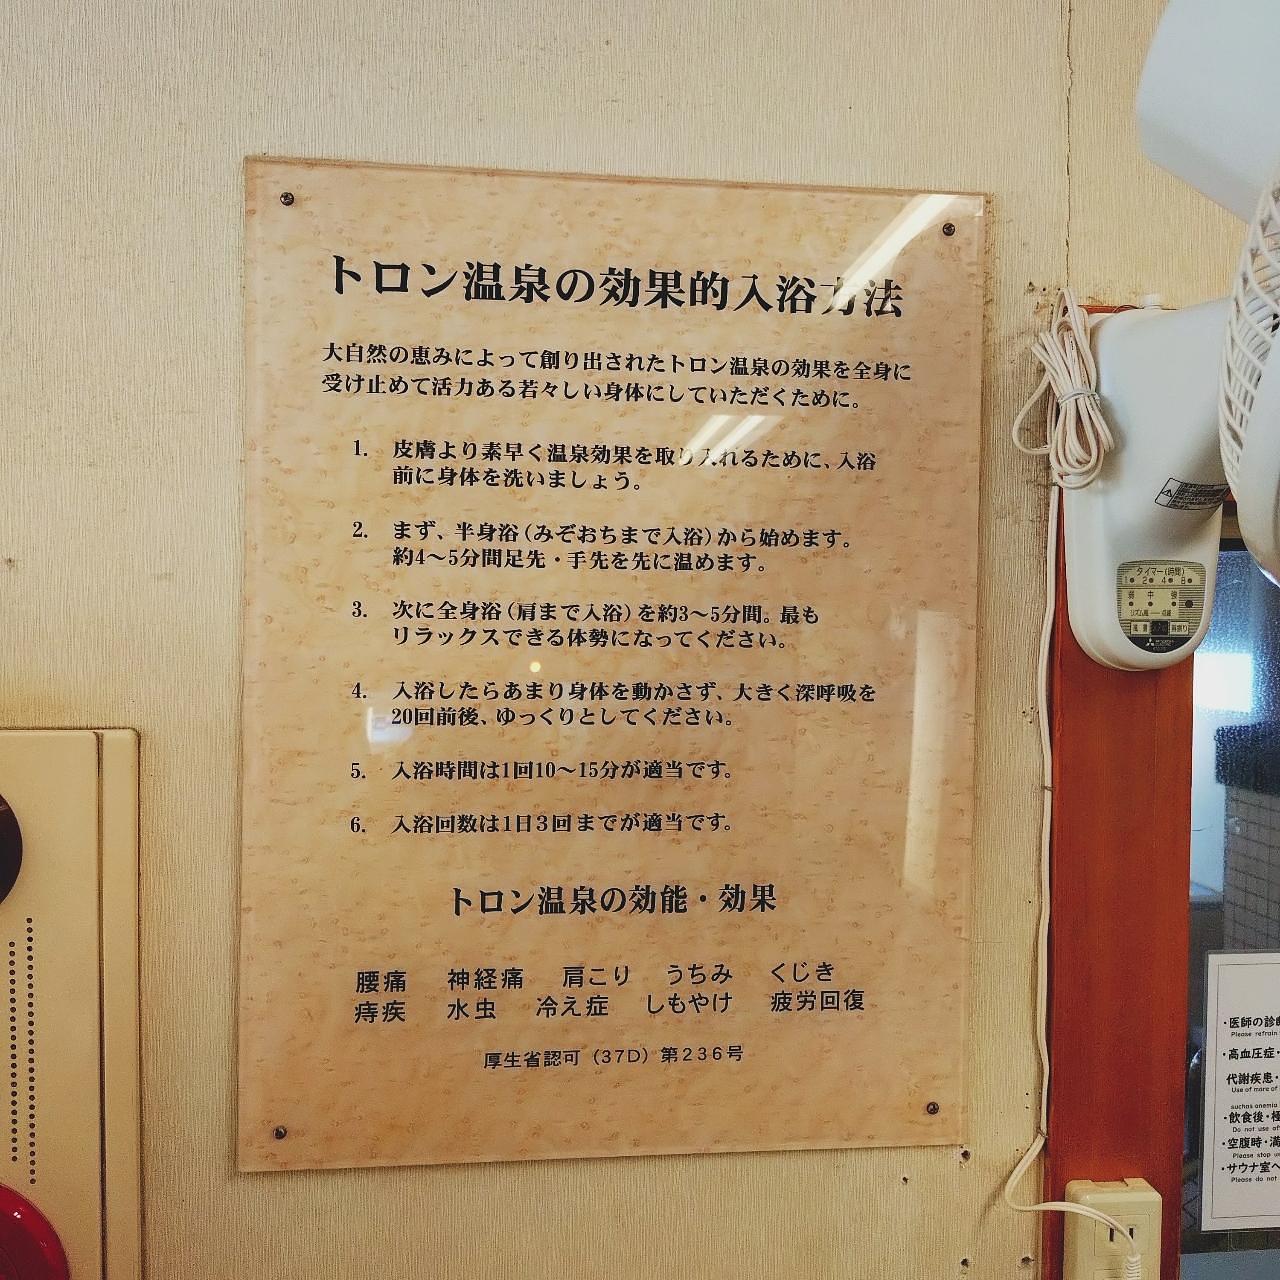 トロン温泉の効果的入浴方法
大自然の恵みによって創り出されたトロン温泉の効果を全身に
受け止めて活力ある若々しい身体にしていただくために。
1. 皮膚より素早く温泉効果を取り入れるために、入浴
前に身体を洗いましょう。
2. まず、半身浴（みぞおちまで入浴）から始めます。
約4〜5分間足先・手先を先に温めます。
3. 次に全身浴（肩まで入浴）を約3〜5分間。最も
リラックスできる体勢になってください。
4. 入浴したらあまり身体を動かさず、大きく深呼吸を
20回前後、ゆっくりとしてください。
5. 入浴時間は1回10〜15分が適当です。
6. 入浴回数は1日3回までが適当です。
トロン温泉の効能・効果
腰痛 神経痛 肩こり うちみ くじき
痔疾 水虫 冷え症 しもやけ 疲労回復
厚生省認可（37D）第236号
タイマー(時間)
1 2 4 8
弱 中 強
風量
・医師の診
Please refrain
・高血圧症・
代謝疾患・
Use of more of
suchas anemia
・飲食後・
Do not use
・空腹時・満
Please stop
・サウナ室へ
Please do not